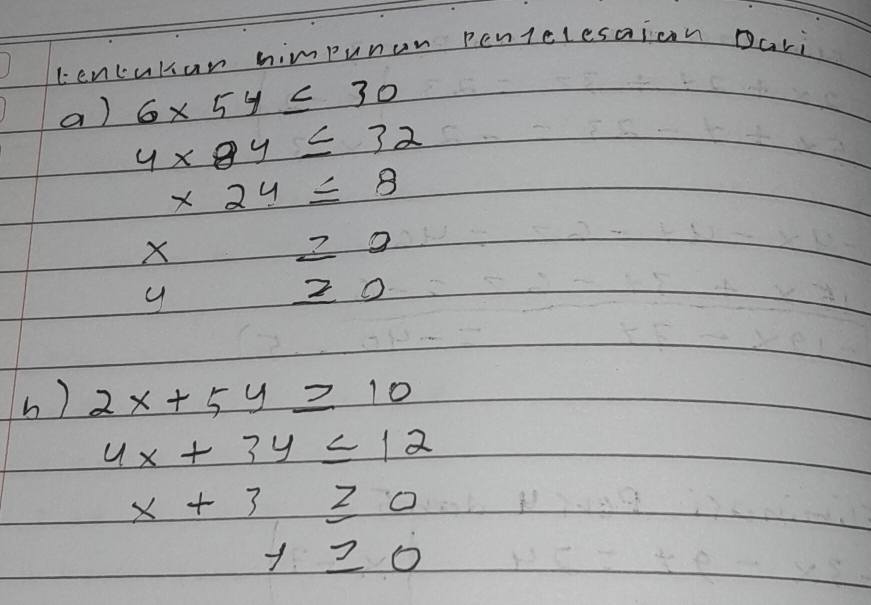 tentukan himpunan penyelesaian Dari
a) 6x 5y ≤ 30
4x 8y ≤ 32
x 2y ≤ 8
x ≥ 0
y ≥ 0
b) 2x + 5y ≥ 10
4x + 3y ≤ 12
x + 3 ≥ 0
y ≥ 0